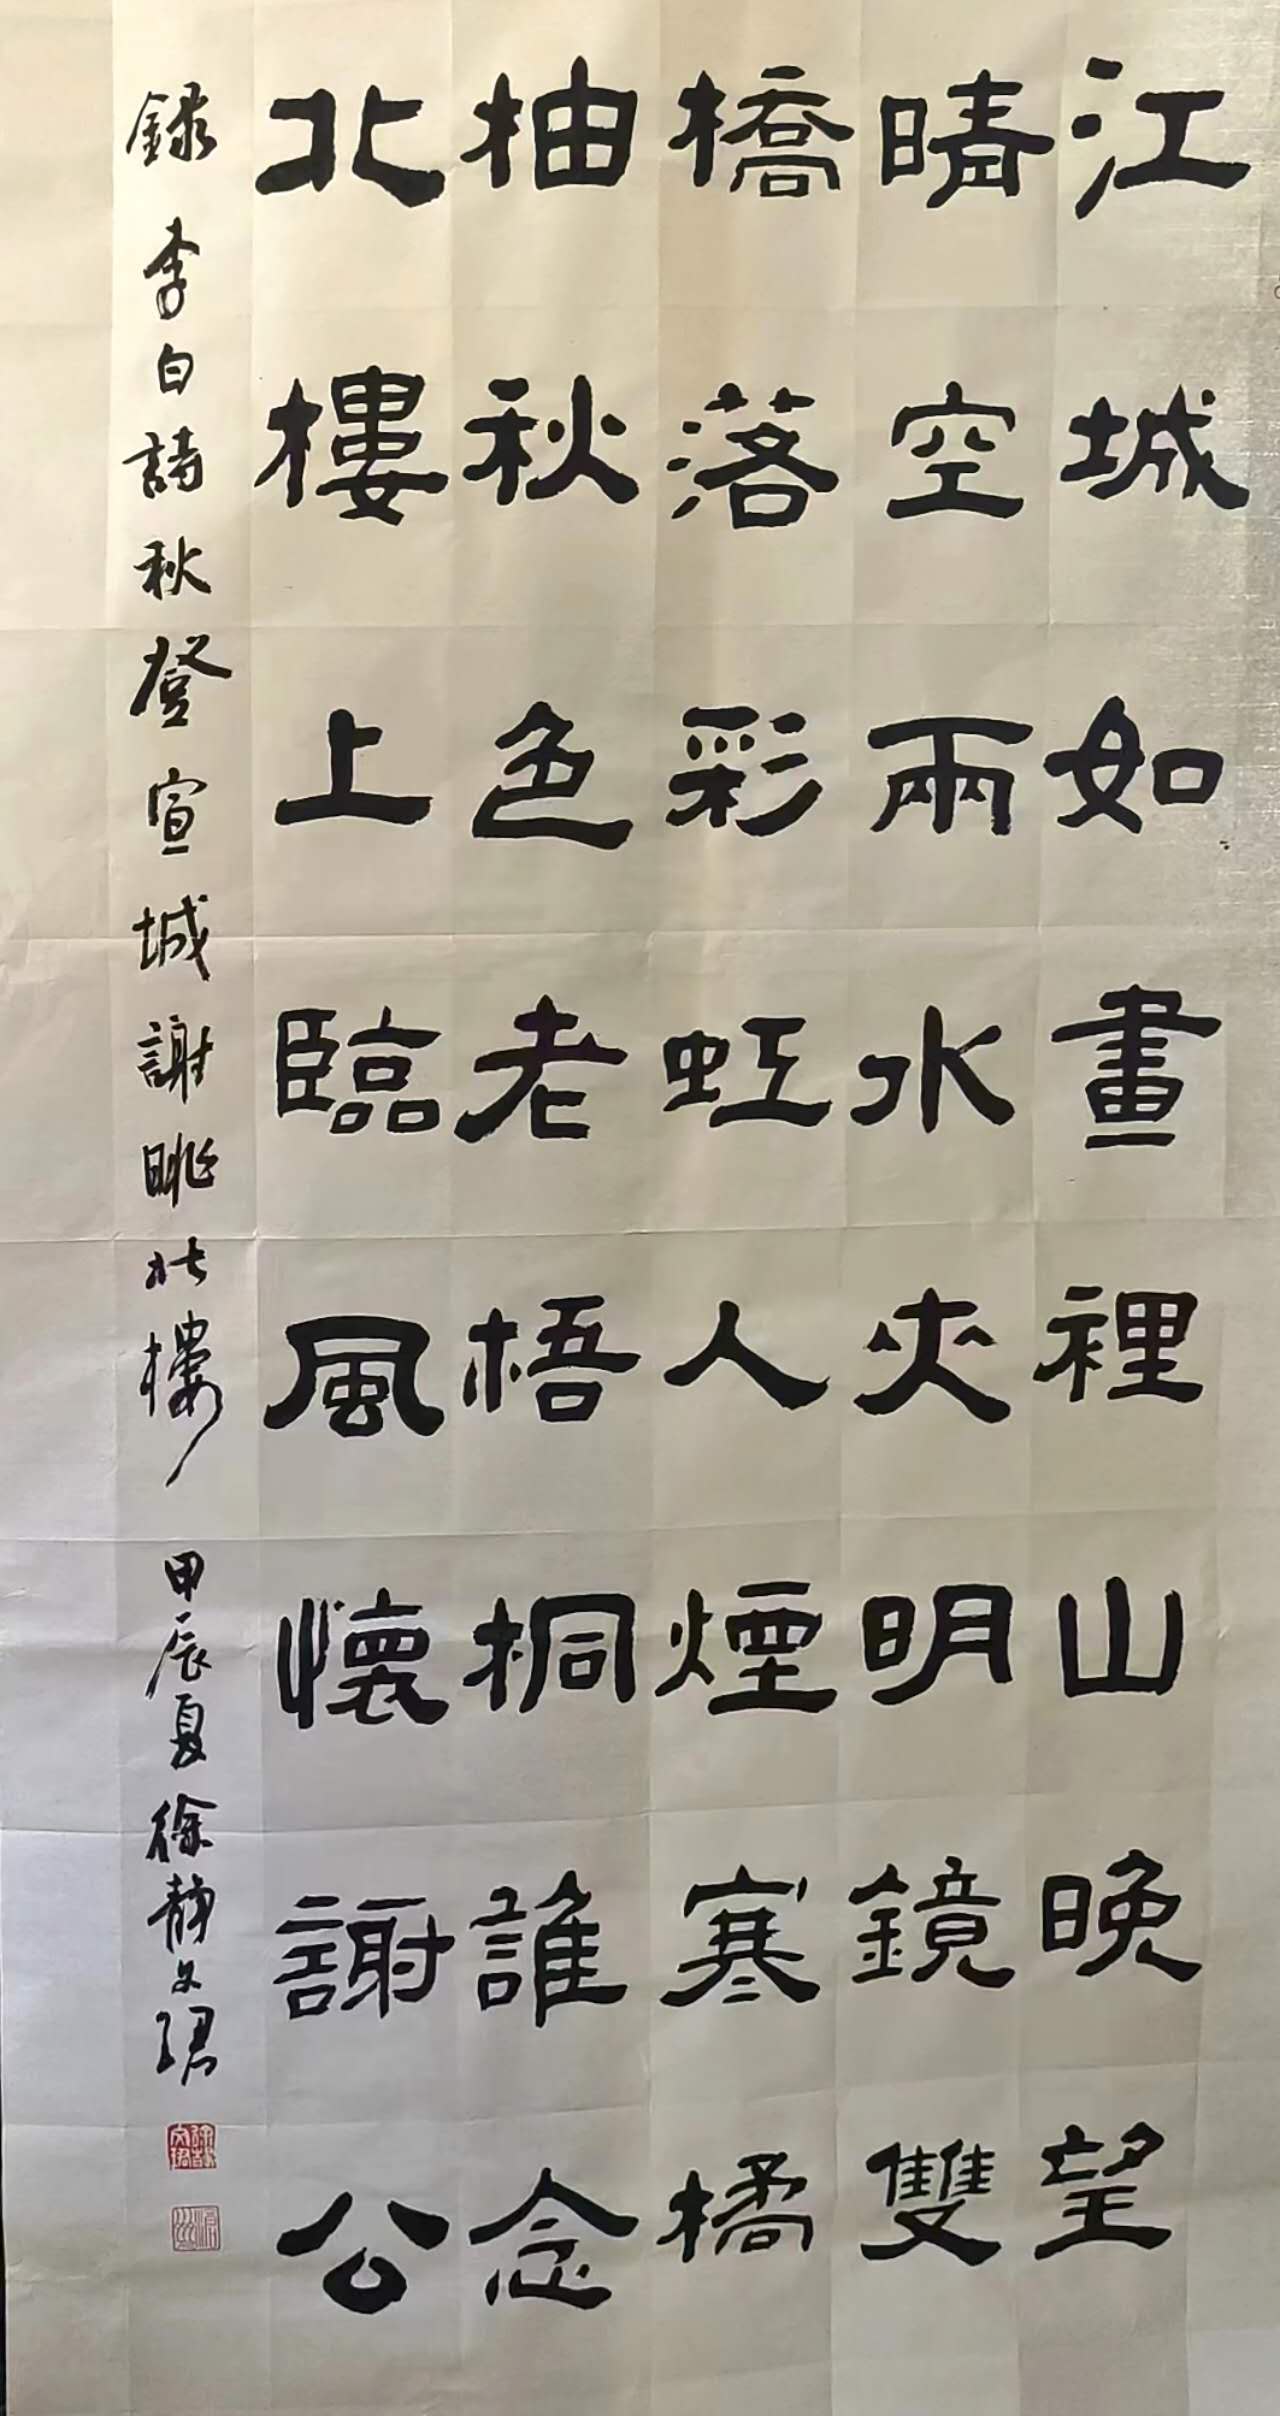 江城如畫裡山晚望
晴空兩水夾明鏡雙
橋落彩虹人煙寒橘
柚秋色老梧桐誰念
北樓上臨風懷謝公
録李白詩秋登宣城謝眺北樓 甲辰夏徐静文珺